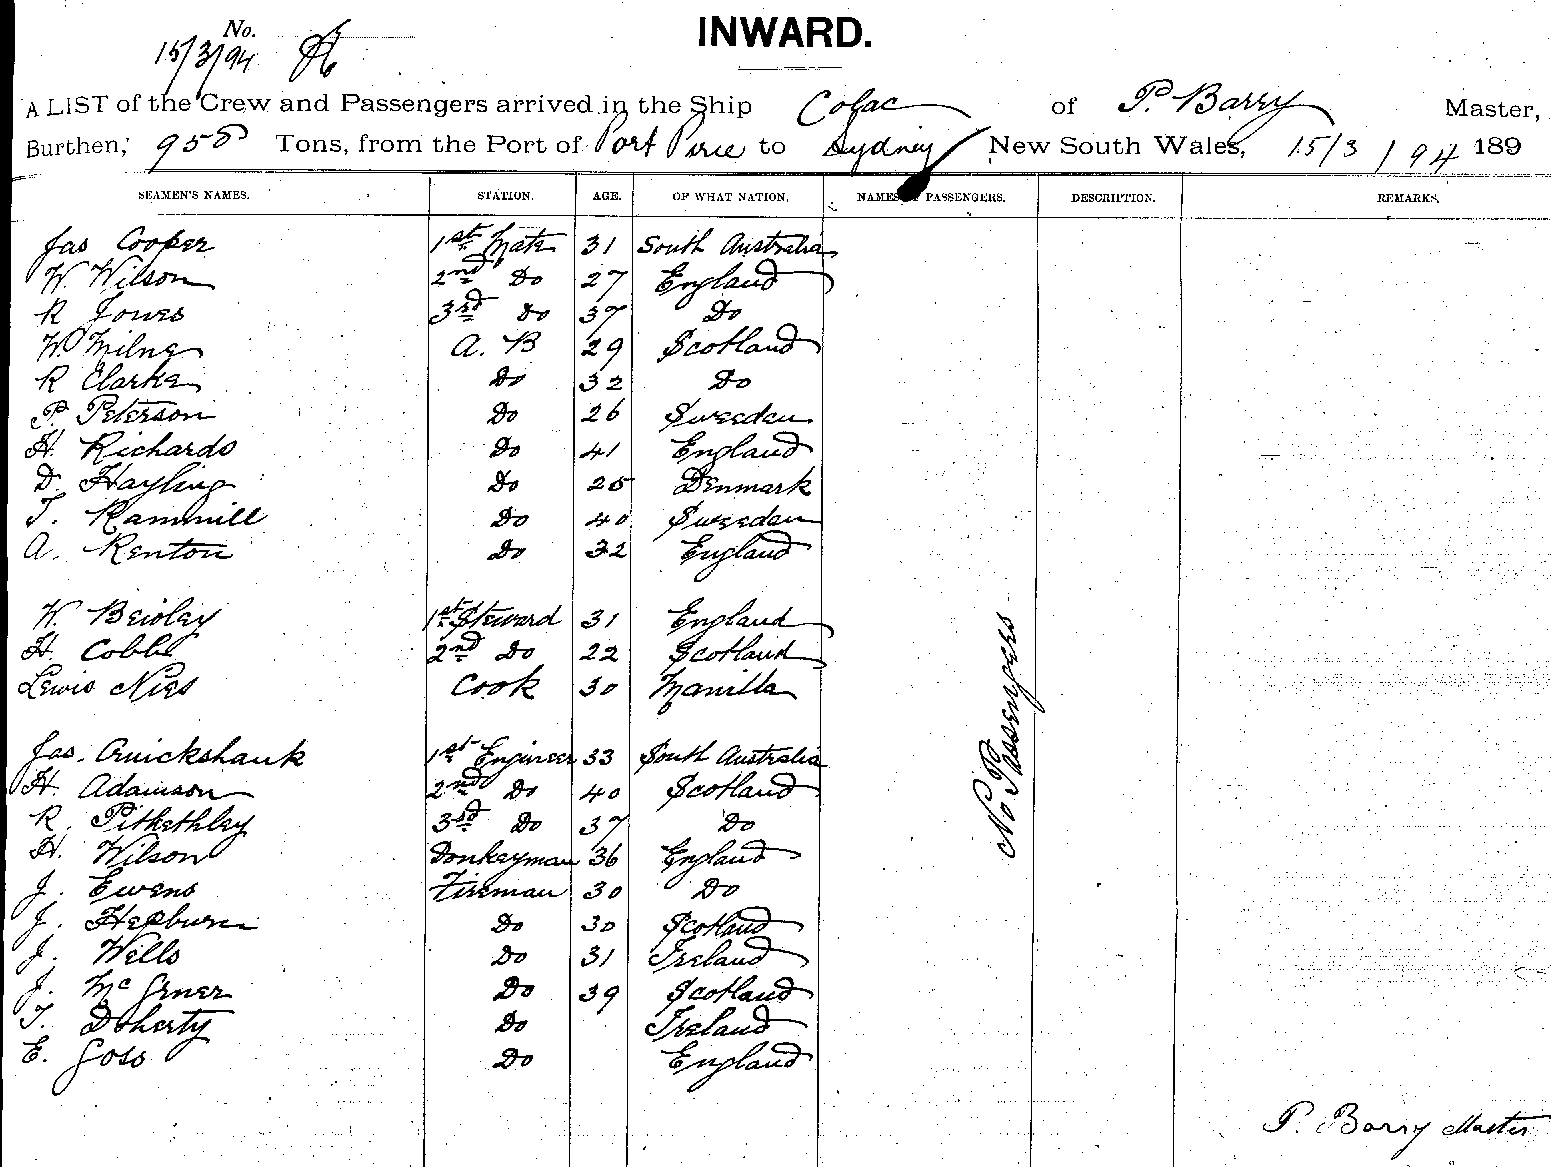 INWARD.
No.
15/3/94
A LIST of the Crew and Passengers arrived in the Ship Colac of P. Barry Master,
Burthen, 958 Tons, from the Port of Port Pirie to Sydney New South Wales, 15/3/94 189
SEAMEN'S NAMES. STATION. AGE. OF WHAT NATION. NAMES OF PASSENGERS. DESCRIPTION. REMARKS.
Jas Cooper 1st Mate 31 South Australia
W. Wilson 2nd Do 27 England
R Jones 3rd Do 37 Do
W. Milne A. B 29 Scotland
R Clarke Do 32 Do
P. Peterson Do 26 Sweeden
H. Richards Do 41 England
D. Hayling Do 25 Denmark
T. Rammill Do 40 Sweeden
A. Renton Do 32 England
W. Beioley 1st Steward 31 England
H. Cobbe 2nd Do 22 Scotland
Lewis Nies Cook 30 Manilla
Jas. Cruickshank 1st Engineer 33 South Australia
H. Adamson 2nd Do 40 Scotland
R. Pitkethley 3rd Do 37 Do
H. Wilson Donkeyman 36 England
J. Ewens Fireman 30 Do
J. Hepburn Do 30 Scotland
J. Wells Do 31 Ireland
J. Do 39 Scotland
T. Doherty Do Ireland
E. Goss Do England
No Passengers
P. Barry Master